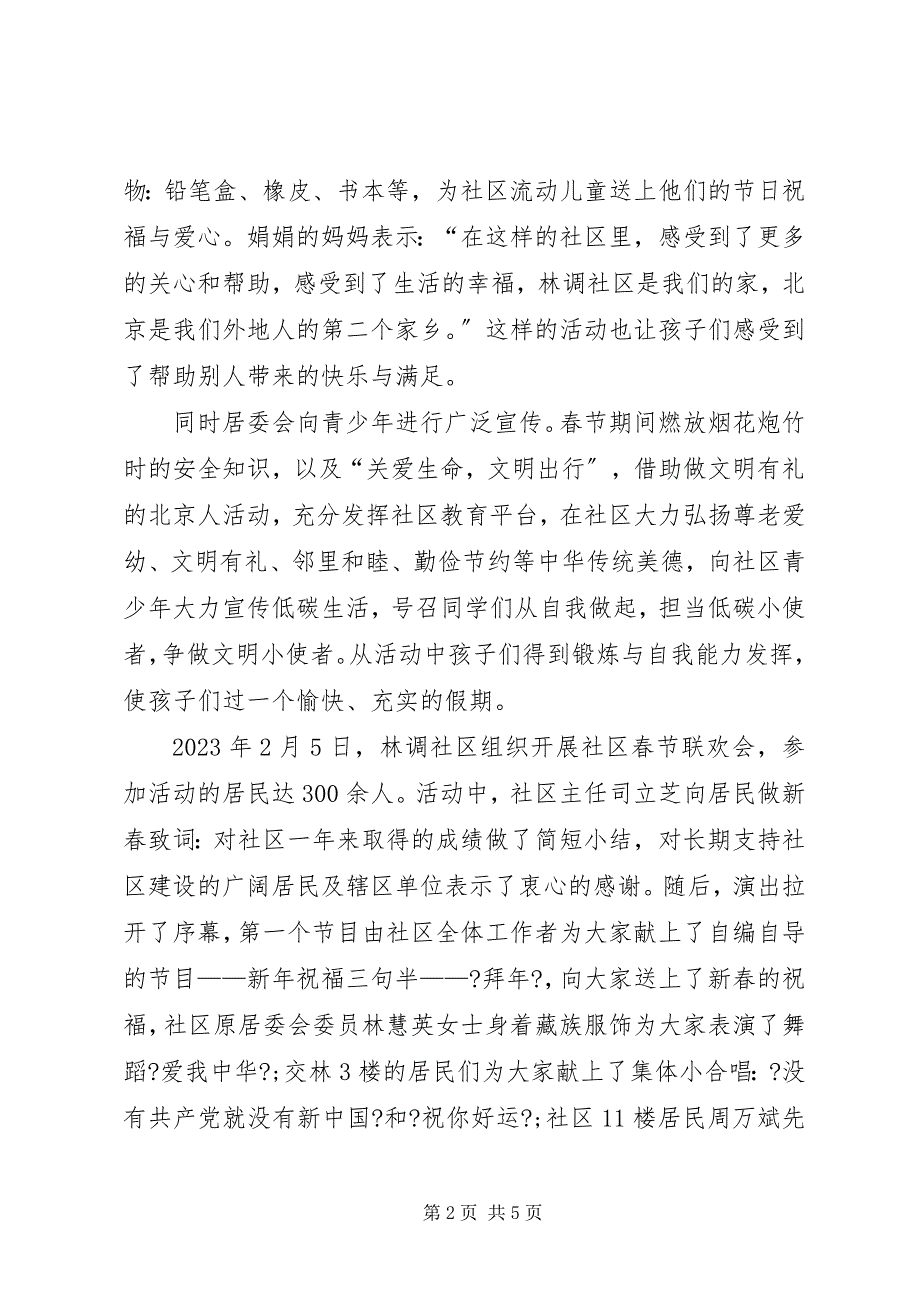 物：铅笔盒、橡皮、书本等，为社区流动儿童送上他们的节日祝
福与爱心。娟娟的妈妈表示：“在这样的社区里，感受到了更多
的关心和帮助，感受到了生活的幸福，林调社区是我们的家，北
京是我们外地人的第二个家乡。〞这样的活动也让孩子们感受到
了帮助别人带来的快乐与满足。
同时居委会向青少年进行广泛宣传。春节期间燃放烟花炮竹
时的安全知识，以及“关爱生命，文明出行〞，借助做文明有礼
的北京人活动，充分发挥社区教育平台，在社区大力弘扬尊老爱
幼、文明有礼、邻里和睦、勤俭节约等中华传统美德，向社区青
少年大力宣传低碳生活，号召同学们从自我做起，担当低碳小使
者，争做文明小使者。从活动中孩子们得到锻炼与自我能力发挥，
使孩子们过一个愉快、充实的假期。
2023 年 2 月 5 日，林调社区组织开展社区春节联欢会，参
加活动的居民达 300 余人。活动中，社区主任司立芝向居民做新
春致词：对社区一年来取得的成绩做了简短小结，对长期支持社
区建设的广阔居民及辖区单位表示了衷心的感谢。随后，演出拉
开了序幕，第一个节目由社区全体工作者为大家献上了自编自导
的节目——新年祝福三句半——?拜年?，向大家送上了新春的祝
福，社区原居委会委员林慧英女士身着藏族服饰为大家表演了舞
蹈?爱我中华?;交林 3 楼的居民们为大家献上了集体小合唱：?没
有共产党就没有新中国?和?祝你好运?;社区 11 楼居民周万斌先
第 2 页 共 5 页